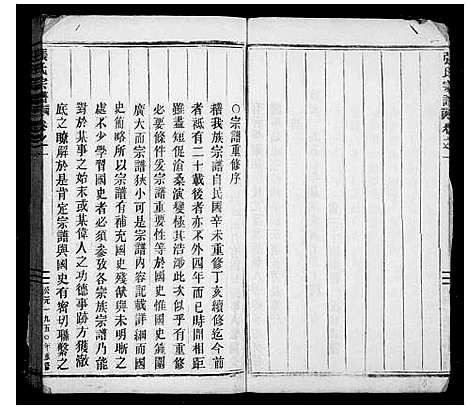 張氏宗譜
○宗譜重修序
稽我族宗譜自民國辛未重修丁亥續修迄今前
者祗有二十載後者亦不外四年而已時間相距
雖盡短促滄桑演變極其浩渺此次似乎有重修
必要條件爰宗譜重要性等於國史惟國史範圍
廣大而宗譜狹小可是宗譜內容記載詳細而國
史簡略所以宗譜有補充國史殘猷與未明晰之
處不少學習國史者必須參攷各宗族宗譜乃能
對於某事之始末或某偉人之功德事跡方獲澈
底之瞭解於是肯定宗譜與國史有密切聯繫之
張氏宗譜 卷之一
公元一九五〇年重修